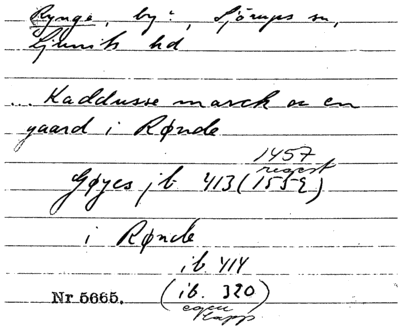 Rynge, by:, Sjörups sn,
Ljunits hd
... Kaddusse marck oc en
gaard i Rønde
1457
regest
Gøyes jb 413 (1552)
i Rønde
ib 414
Nr 5665. (ib. 320)
egen
Kapp